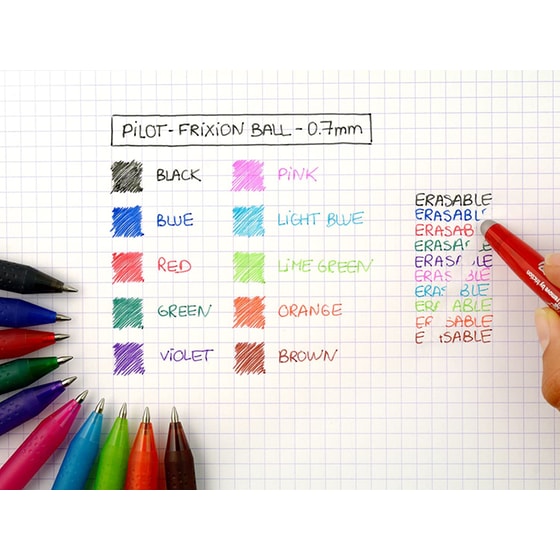 PILOT - FRIXION BALL - 0.7mm
BLACK
BLUE
RED
GREEN
VIOLET
PINK
LIGHT BLUE
LIME GREEN
ORANGE
BROWN
ERASABLE
ERASABL
ERASAB
ERASA LE
ERASA BLE
ERAS BLE
ERAS BLE
ER ABLE
ER SABLE
E SABLE